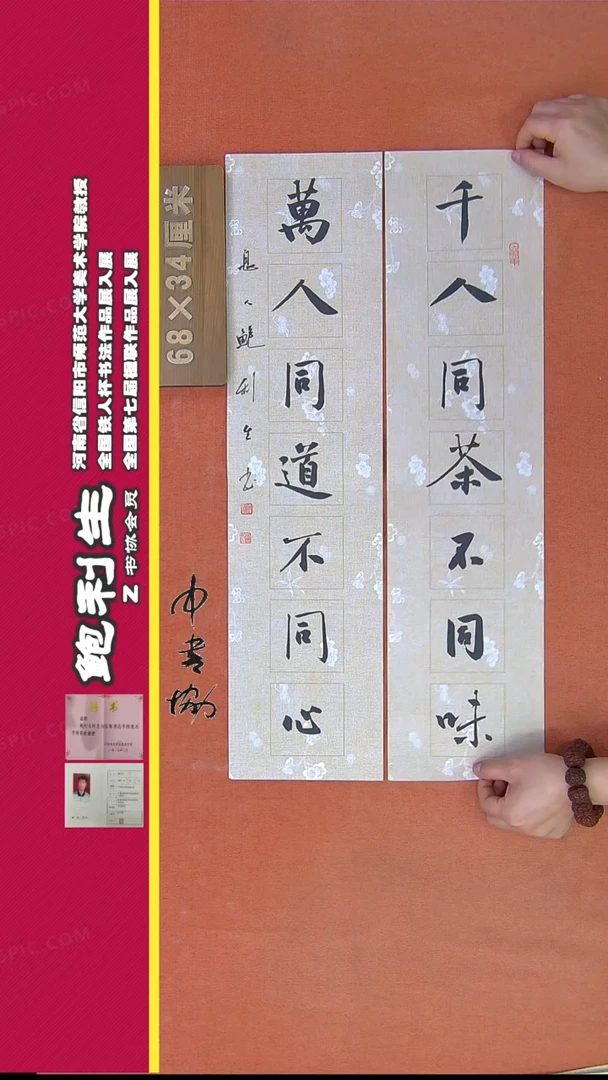 千人同茶不同味
萬人同道不同心
息人鮑利生書
68×34厘米
中書協
鲍利生
Z书协会员
河南省信阳市师范大学美术学院教授
全国铁人杯书法作品展入展
全国第七届楹联作品展入展